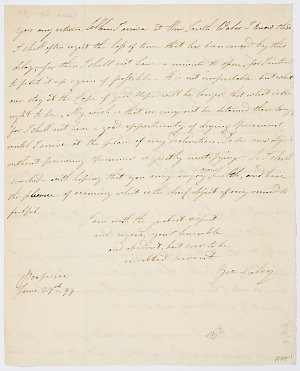 you may receive. When I arrive at New South Wales I know that
I shall often regret the loss of time that has been caused by this
delay, for then I shall not have a minute to spare, for I intend
to fetch it up again if possible. It is not improbable but what
our stay at the Cape of Good Hope will be longer than what it
ought to be. My wish is that we may not be detained there long,
for I shall not have a good opportunity of drying specimens
until I arrive at the place of my destination. To be
without preserving specimens is greatly mortifying. Sir I shall
conclude with hoping that you may enjoy health, and have
the pleasure of receiving what is the chief object of my
I am with the greatest respect
and regard, your humble
and obedient, but ever to be
servant
Geo. Caley
Porpoise
June 29th. 99